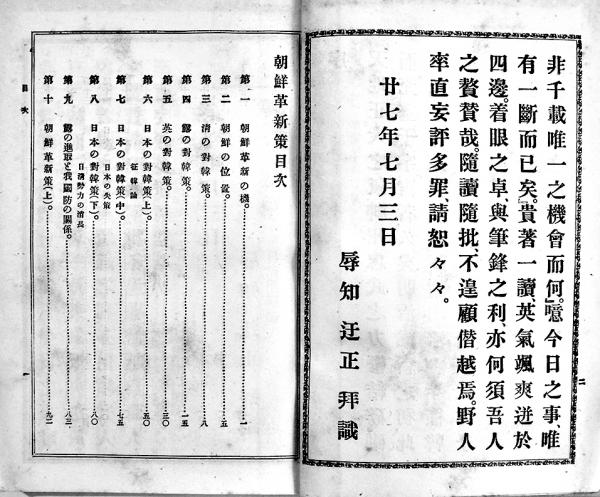 二
非千載唯一之機會而何。噫今日之事、唯
有一斷而已矣。貴著一讀、英氣颯爽迸於
四邊。着眼之卓、與筆鋒之利、亦何須吾人
之贅賛哉。隨讀隨批、不遑顧僭越焉。野人
率直妄評多罪、請恕々々。
廿七年七月三日
辱知 迂正 拜識
朝鮮革新策目次
第一 朝鮮革新の機。 一
第二 朝鮮の位置。 五
第三 清の對韓策。 八
第四 露の對韓策。 一五
第五 英の對韓策。 三〇
第六 日本の對韓策(上)。 五〇
征韓論
第七 日本の對韓策(中)。 七五
日本の失策
第八 日本の對韓策(下)。 八〇
日清勢力の消長
第九 露の進取と我國防の關係。 八三
第十 朝鮮革新策(上)。 九二
目次
一